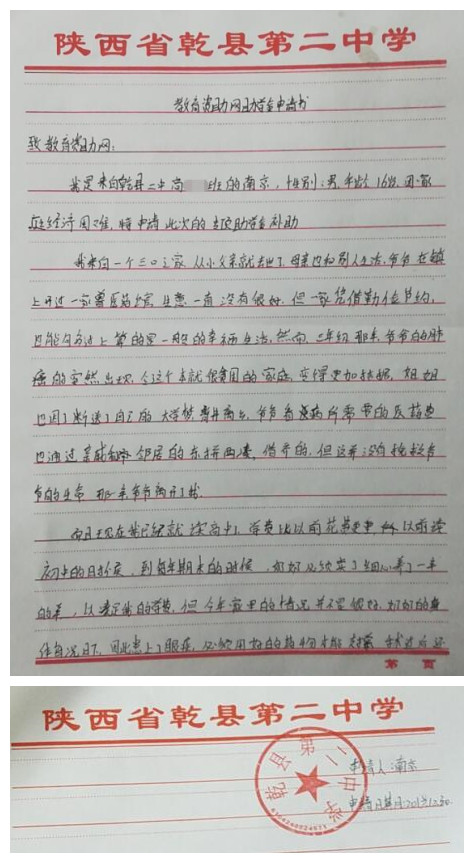 陕西省乾县第二中学
教育资助网助学金申请书
致教育资助网:
我是来自乾县二中高 班的南京,性别:男,年龄16岁,因家
庭经济困难,特申请此次的专项助学金补助
我来自一个三口之家,从小父亲就去世了,母亲也和别人生活,爷爷在镇
上开过一家兽医药馆,生意一直没有很好,但一家凭借勤俭节约,
也能勾勾过上算的完一般的幸福生活,然而,三年级那年爷爷的肺
癌的突然出现,令这个本就很贫困的家庭变得更加拮据,姐姐
也因了断送了自己的大学梦,费井离乡,爷爷看病所需带的医药费
也通过亲戚和邻居的东拼西凑,借齐的,但这并没有挽救爷
爷的生命,那年爷爷离开了我
而且现在我已经就读高中了,学费比以前花费更重,以前读
初中的日时候,到每年期末的时候,奶奶必须卖了细心养了一年
的羊,以凑足我的学费,但今年家里的情况并不是很好,奶奶的身
体每况日下,因此患上了眼疾,必须用好的药物才能
陕西省乾县第二中学
乾县第二中学
申请人:南京
申请日期: